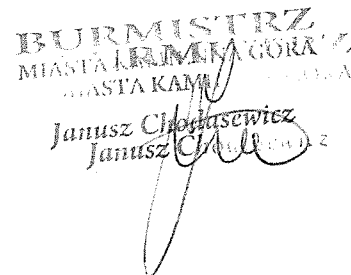 BURMISTRZ
MIASTA KAMIENNA GÓRA
MIASTA KAM
Janusz Chodasewicz
Janusz